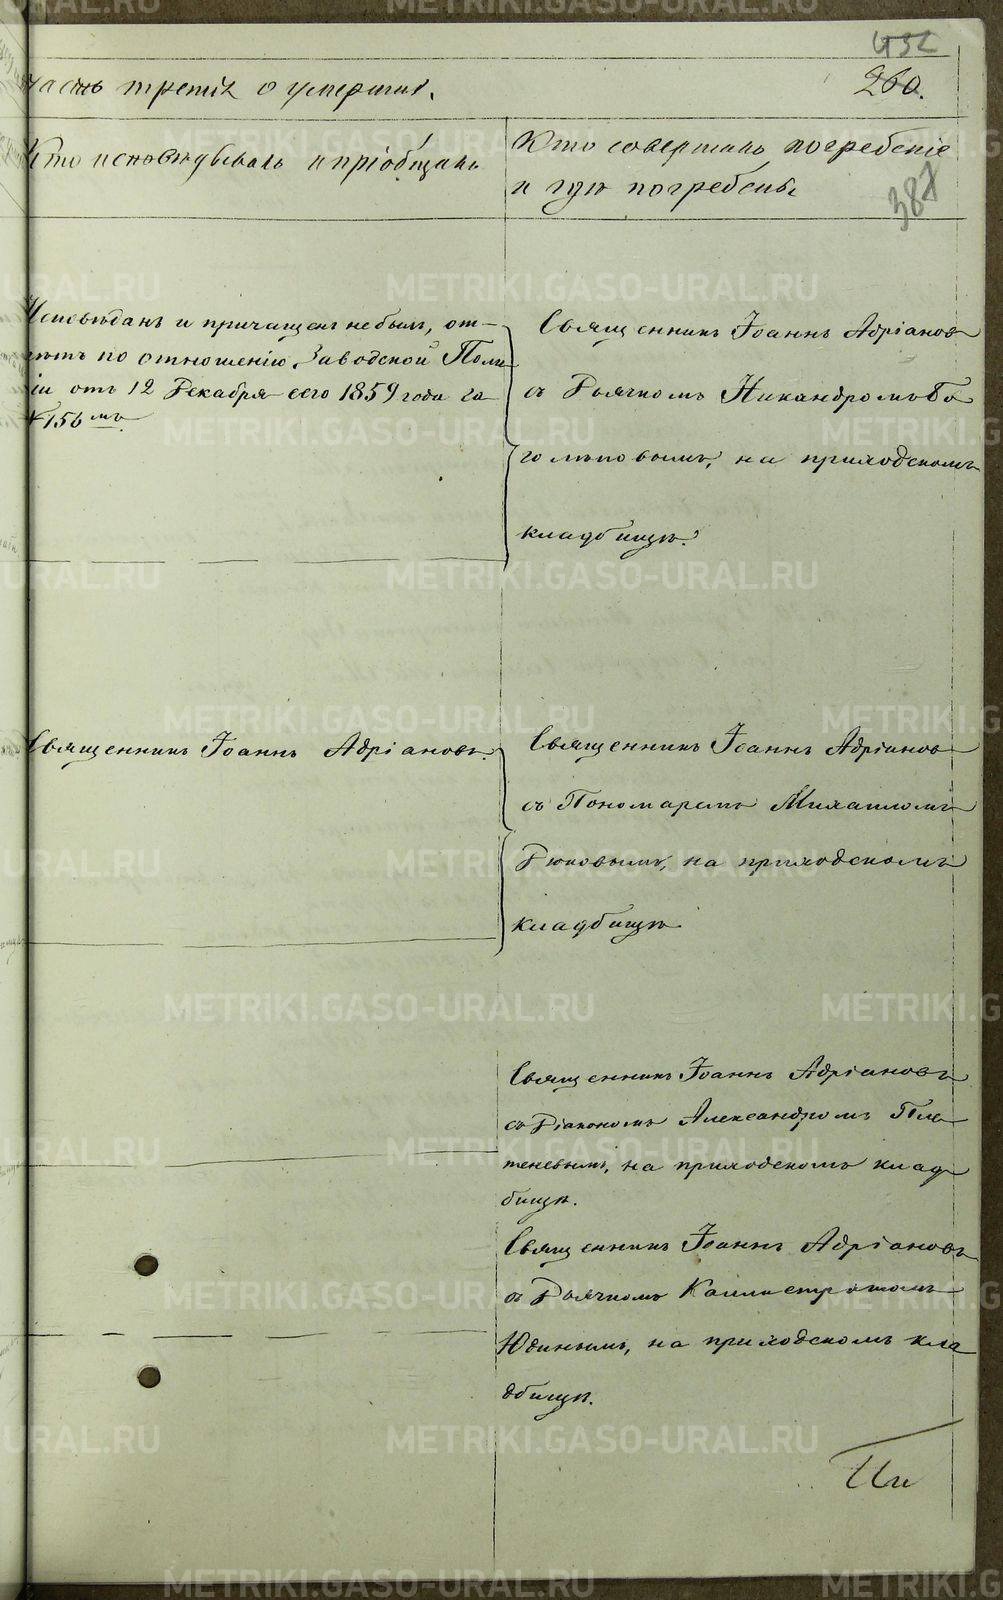 432
260.
Часть третія о умершихъ.
Кто исповѣдывалъ и пріобщалъ
Кто совершалъ погребеніе
и гдѣ погребены
387
Исповѣданъ и причащенъ не былъ, от-
пѣтъ по отношенію Заводской Поли
ціи отъ 12 Декабря сего 1859 года за
№ 156 мъ.
Священникъ Іоаннъ Адріановъ
съ Дьячкомъ Никандромъ Бо
голѣповымъ, на приходскомъ
кладбищѣ.
Священникъ Іоаннъ Адріановъ.
Священникъ Іоаннъ Адріановъ
съ Пономаремъ Михаиломъ
Дюковымъ, на приходскомъ
кладбищѣ.
Священникъ Іоаннъ Адріановъ
съ Діакономъ Александромъ Пле
теневымъ, на приходскомъ клад
бищѣ.
Священникъ Іоаннъ Адріановъ
съ Дьячкомъ Каллистратомъ
Юдинымъ, на приходскомъ кла
дбищѣ.
METRIKI.GASO-URAL.RU